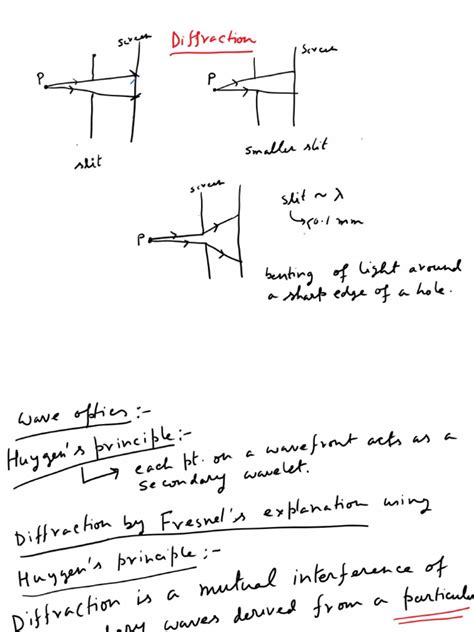 Diffraction
screen
screen
P
P
slit
smaller slit
screen
slit ~ λ
P
benting of light around
a sharp edge of a hole.
wave optics :-
Huygen's principle :-
each pt. on a wavefront acts as a
secondary wavelet.
Diffraction by Fresnel's explanation using
Huygen's principle :-
Diffraction is a mutual interference of
waves derived from a particula